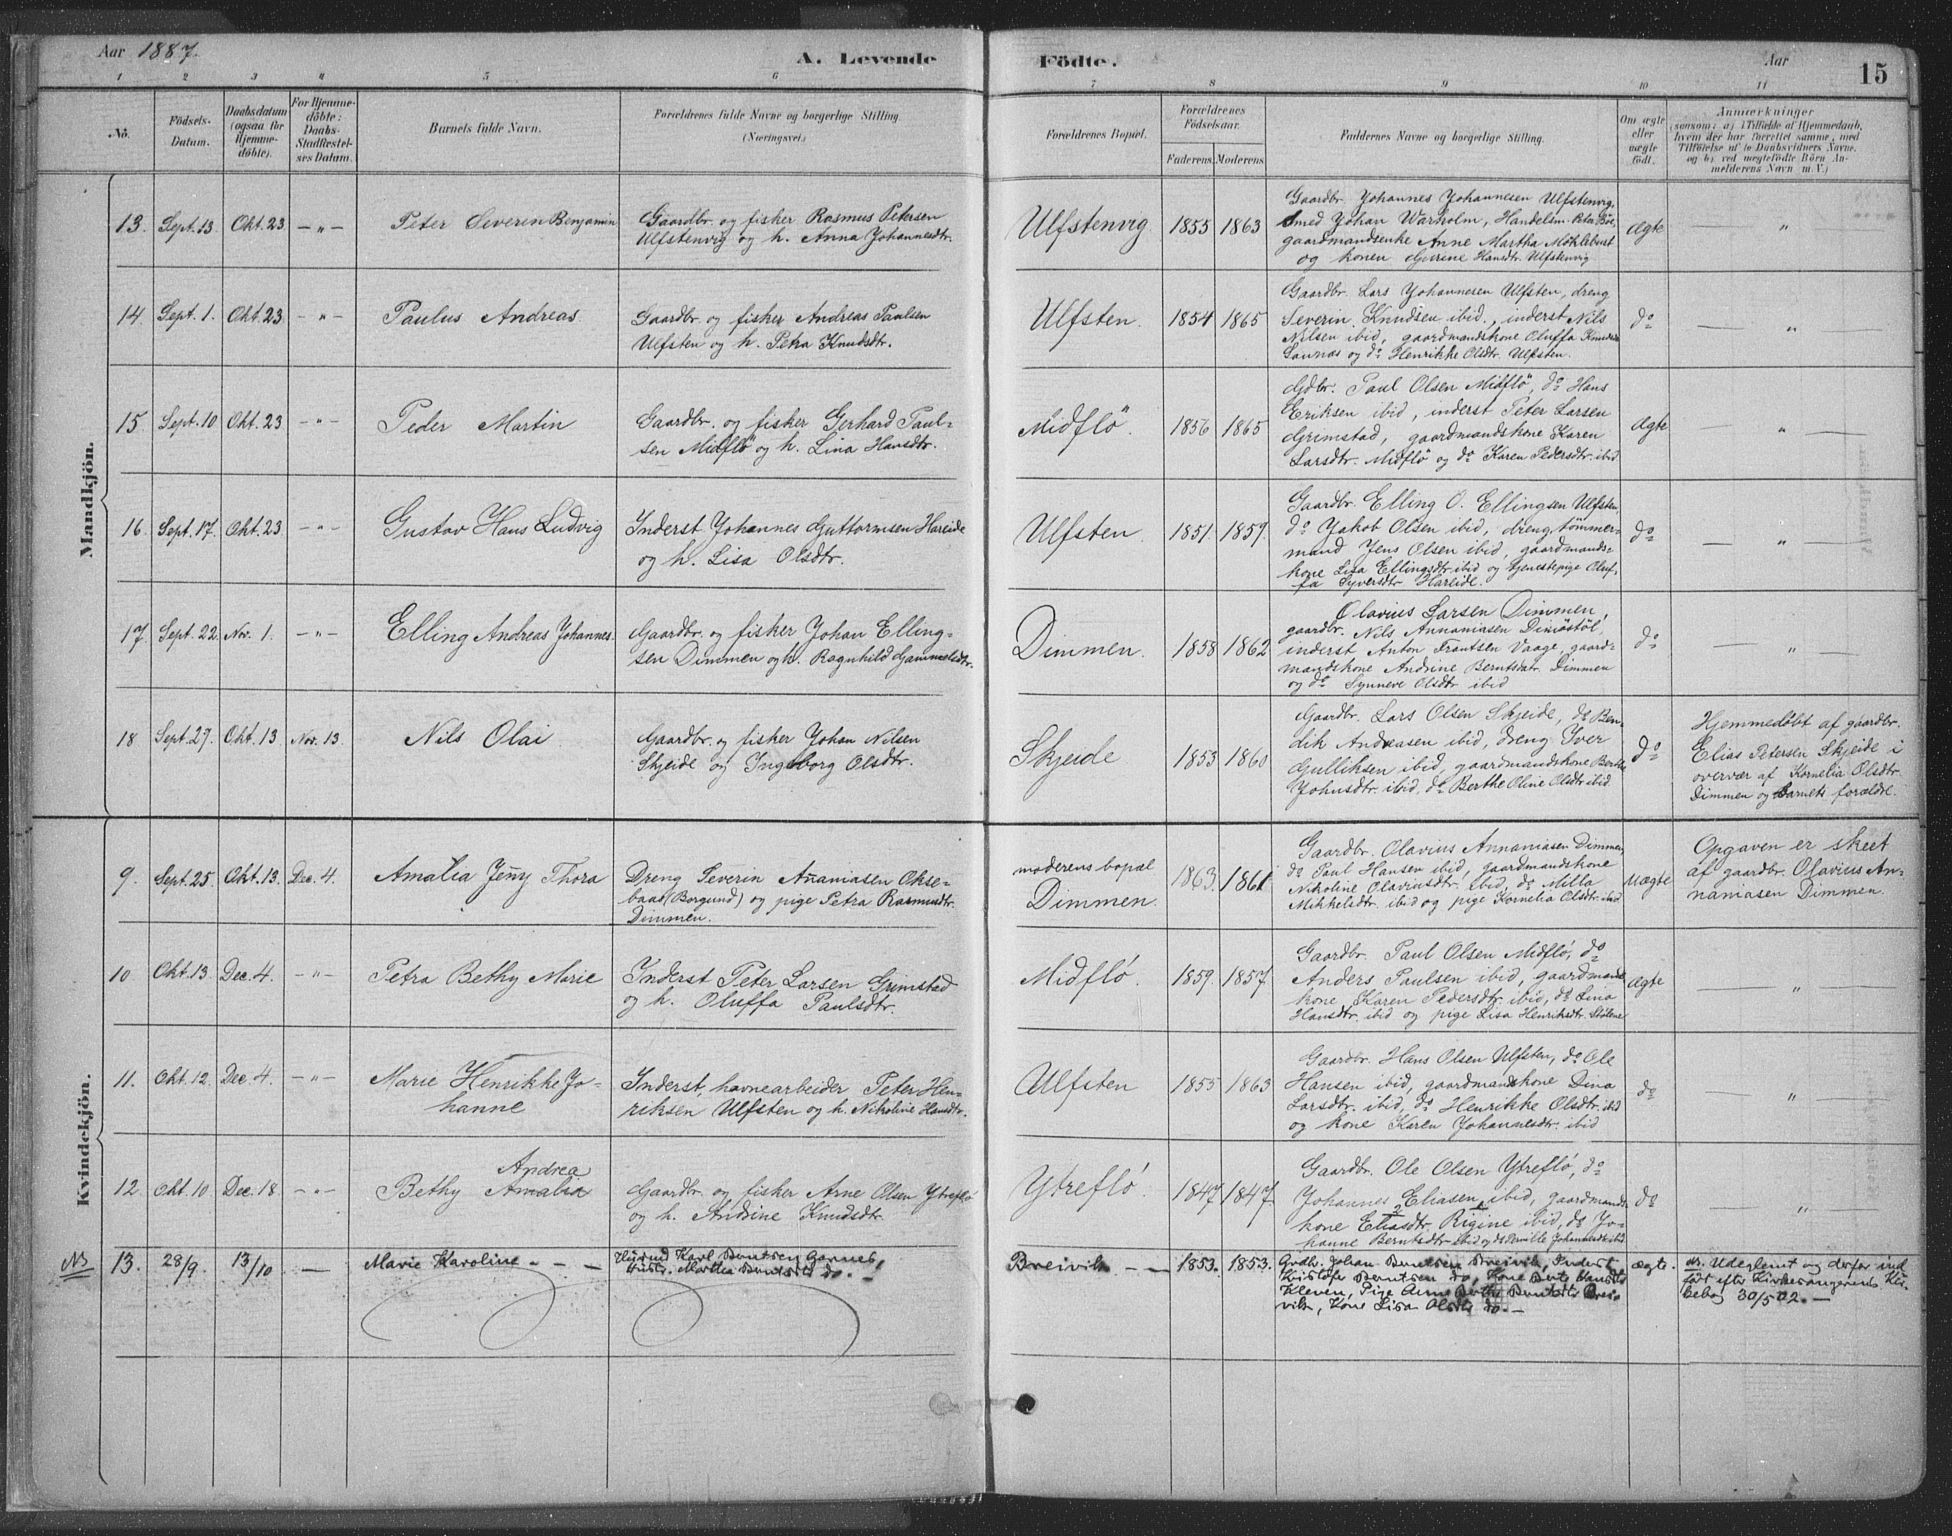 Aar 1887.
A. Levende Födte.
Aar
15
1 2 3 4 5 6 7 8 9 10 11
No.
Födsels-
Datum.
Daabsdatum
(ogsaa for
Hjemme-
döbte).
For Hjemme-
döbte:
Daabs-
Stadfæstel-
ses Datum.
Barnets fulde Navn.
Forældrenes fulde Navne og borgerlige Stilling
(Næringsvei.)
Forældrenes Bopæl.
Forældrenes
Födselsaar.
Faderens
Moderens
Faddernes Navne og borgerlige Stilling.
Om ægte
eller
uægte
födt.
Anmærkninger
(saasom: a) i Tilfælde af Hjemmedaab,
hvem der har forrettet samme, med
Tilföielse af to Daabsvidners Navne,
og b) ved uægtefödte Börn An-
melderens Navn m. V.)
Mandkjön.
13. Sept. 13 Okt. 23 — " —
Peter Severin Benjamin
Gaardbr. og fisker Rasmus Petersen
Ulfstenvig og h. Anna Johannesdtr.
Ulfstenvig. 1855 1863
Gaardbr. Johannes Johannesen Ulfstenvig,
Smed Johan Warholm, Handelsm. Peter Böe,
gaardmandsenke Anne Martha Möklebust
og konen Gurine Hansdtr. Ulfstenvig
Ægte — " —
14 Sept. 1. Okt. 23 — " —
Paulus Andreas.
Gaardbr. og fisker Andreas Paulsen
Ulfsten og h. Petra Knudsdtr.
Ulfsten. 1854 1865
Gaardbr. Lars Johannesen Ulfsten, dreng
Severin Knudsen ibid., inderst Nils
Nilsen ibid, gaardmandskone Oluffa Knudsdtr
og do Henrikke Olsdtr. Ulfsten.
do — " —
15 Sept. 10 Okt. 23 — " —
Peder Martin
Gaardbr. og fisker Gerhard Paul-
sen Midflö og h. Lina Hansdtr.
Midflö. 1856 1865
Gdbr. Paul Olsen Midflö, do Hans
Eriksen ibid, inderst Peter Larsen
Grimstad, gaardmandskone Karen
Larsdtr. Midflö og do Karen Pedersdtr. ibid
Ægte — " —
16. Sept. 17. Okt. 23 — " —
Gustav Hans Ludvig
Inderst Johannes Guttormsen Hareide
og h. Lisa Olsdtr.
Ulfsten. 1851. 1859.
Gaardbr. Elling O. Ellingsen Ulfsten,
do Jakob Olsen ibid, dreng tömmer-
mand Jens Olsen ibid, gaardmands-
kone Lisa Ellingsdtr. ibid og tjenestepige Oluf-
fa Syversdtr Hareide.
do — " —
17. Sept. 22. Nov. 1. — " —
Elling Andreas Johannes.
Gaardbr. og fisker Johan Elling-
sen Dimmen og h. Ragnhild Gammelsdtr.
Dimmen. 1858 1862
Olavius Larsen Dimmen,
gaardbr. Nils Annaniasen Dimöstöl,
inderst Anton Frantsen Vaage, gaard-
mandskone Andrine Berntsdtr. Dimmen
og do Synneve Olsdtr ibid
do — " —
18 Sept. 27. Okt. 13 Nov. 13.
Nils Olai.
Gaardbr. og fisker Johan Nilsen
Skjeide og Ingeborg Olsdtr.
Skjeide 1853 1860
Gaardbr. Lars Olsen Skjeide, do Ben-
dik Andreasen ibid, dreng Iver
Gulliksen ibid, gaardmandskone Berthe
Johnsdtr. ibid, do Berthe Oline Olsdtr ibid
do
Hjemmedöbt af gaardbr.
Elias Petersen Skjeide i
overvær af Kornelia Olsdtr.
Dimmen og barnets forældre.
Kvindekjön.
9. Sept. 25. Okt. 13. Dec. 4.
Amalia Jeny Thora
Dreng Severin Ananiasen Okse-
baas (Borgund) og pige Petra Rasmusdtr.
Dimmen.
moderens bopæl
Dimmen. 1863. 1861
Gaardbr. Olavius Annaniasen Dimmen
do Paul Hansen ibid, gaardmandskone
Nikoline Olaviusdtr. ibid, do Milla
Mikkelsdtr. ibid og pige Kornelia Olsdtr. ibid
Uægte
Opgaven er skeet
af gaardbr. Olavius An-
naniasen Dimmen.
10 Okt. 13 Dec. 4. — " —
Petra Bethy Marie
Inderst Peter Larsen Grimstad
og h. Oluffa Paulsdtr.
Midfló 1859. 1857.
Gaardbr. Paul Olsen Midfló, do
Anders Paulsen ibid, gaardmands
kone Karen Pedersdtr. ibid, do Lina
Hansdtr. ibid og pige Lisa Henriksdtr. Stölene
Ægte — " —
11. Okt. 12. Dec. 4. — " —
Marie Henrikke Jo-
hanne
Inderst, havnearbeider Peter Hen-
riksen Ulfsten og h. Nikoline Hansdtr.
Ulfsten 1855 1863
Gaardbr. Hans Olsen Ulfsten, do Ole
Hansen ibid, gaardmandskone Dina
Larsdtr. ibid, do Henrikke Olsdtr. ibid
og kone Karen Johannesdtr. ibid
do — " —
12 Okt. 10 Dec. 18. — " —
Andrea
Bethy Amalia
Gaardbr og fisker Arne Olsen Ytrefló
og h. Andrine Knudsdtr.
Ytrefló. 1847. 1847.
Gaardbr. Ole Olsen Ytrefló, do
Johannes Eliasen ibid, gaardmands
kone Eliasdtr. Rigine ibid, do Jo-
hanne Berntsdtr. ibid og do Pernille Johannesdtr ibid
do — " —
NB 13. 28/9. 13/10 —
Marie Karoline - - -
Husmd Karl Berntsen Garnes,
Hustr. Martha Berntsdtr do. -
Breivik - - 1853. 1853.
Grdbr. Johan Berntsen Breivik, Inderst
Kristofer Berntsen do, Kone Berte Hansdtr
Kleven, Pige Anne Berthe Berntsdtr Brei-
vik, Kone Lisa Olsdtr do. -
ægte.
NB. Udeglemt og derfor ind
fört efter Kirkesangerens Klo-
kebog 30/5 02. -